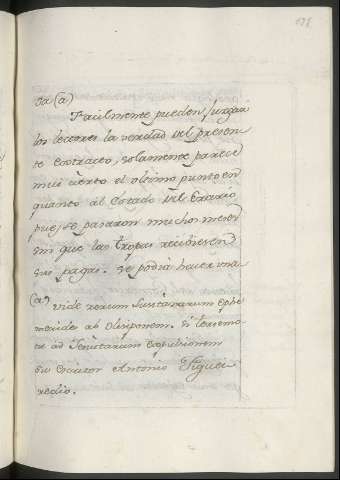 da (a)
Facilmente pueden juzgar
los lectores la verdad del presen-
te extracto, solamente parece
mui cierto el ultimo punto en
quanto al Estado del Erario
pues se pasaron muchos meses
sin que las tropas recibiesen
sus pagas. Se podria hacer una
(a) Vide rerum Lusitanarum Ephe
merides ab Olisiponem.
ad Jesuitarum expulsionem
su Escritor Antonio Figuei
redio.